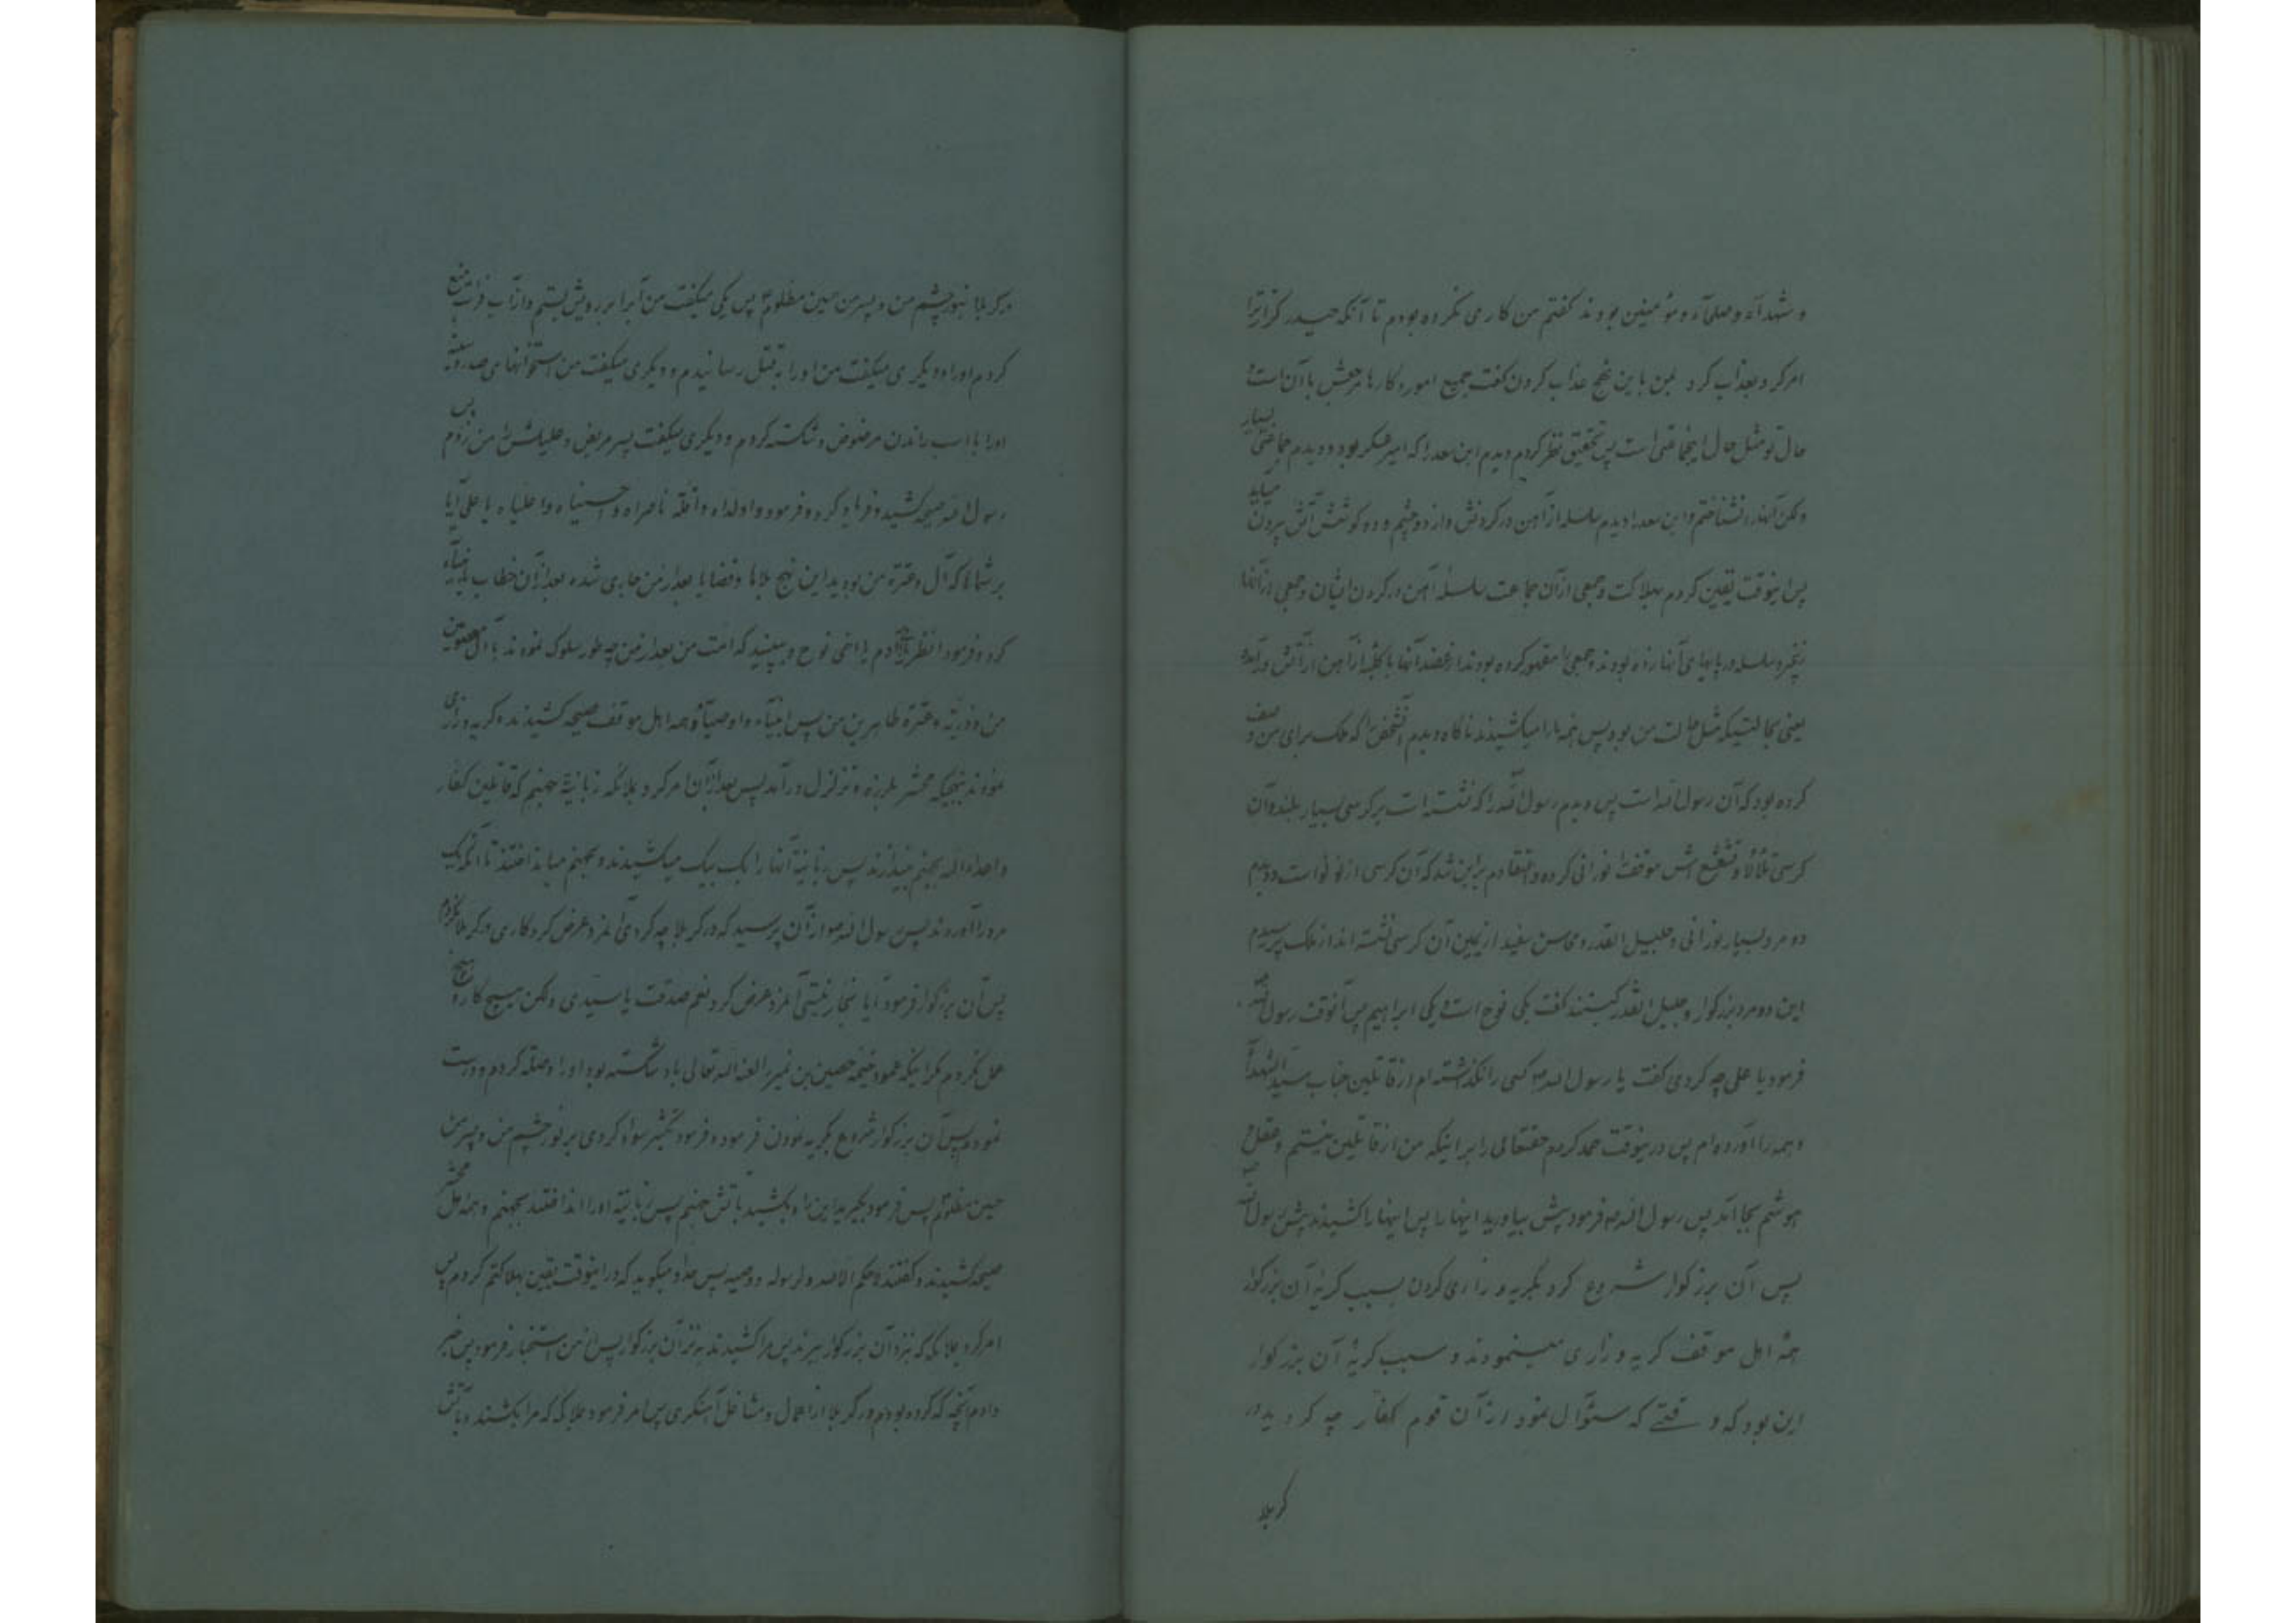 و شهدآء و صلحآء و مؤمنین بودند گفتم من کاری نکرده بودم تا آنکه حیدر کرار ترا
امر کرد بعذاب کرد بمن باین نهج عذاب کردن گفت جمیع امور و کارها مرجعش با آن است و
حال تو مثل حال اینجماعتی است پس تحقیق نظر کردم دیدم ابن سعد را که امیر عسکر بود و دیدم جماعتی بسیار
ولکن آنها را نشناختم و ابن سعد را دیدم سلسله از آهن در گردنش و از دو چشم و دو گوشش آتش بیرون میآید
پس اینوقت یقین کردم بهلاکت و جمعی از آن جماعت سلسله آهن در گردن ایشان و جمعی از آنها
زنجیر و سلسله در پاهای آنها زده بودند و جمعی را مقهور کرده بودند
یعنی بحالتیکه مثل حالت من بود پس همه ما را میکشیدند ناگاه دیدم آنشخص را که ملک برای من وصف
کرده بود که آن رسول الله است پس دیدم رسول الله را که نشسته است بر کرسی بسیار بلند و آن
کرسی تلألأ و تشعشع اش موقف را نورانی کرده و اعتقادم براین شد که آن کرسی از لؤلؤ است و دیدم
دو مرد بسیار نورانی و جلیل القدر و محاسن سفید از یمین آن کرسی نشسته اند از ملک پرسیدم
این دو مرد بزرکوار و جلیل القدر کیستند گفت یکی نوح است و یکی ابراهیم پس آنوقت رسول الله
فرمود یا علی چه کردی گفت یا رسول الله ص کسی را نگذاشته ام از قاتلین جناب سید الشهدآء
و همه را آورده ام پس در ینوقت حمد کردم حقتعالی را بر اینکه من از قاتلین نیستم و عقل و
هوشم بجا آمد پس رسول الله ص فرمود پیش بیاورید اینها را پس اینها را کشیدند پیش رسول الله
پس آن بزرکوار شروع کرد بگریه و زاری کردن بسبب گریهٔ آن بزرکوار
همهٔ اهل موقف گریه و زاری مینمودند و سبب گریهٔ آن بزرکوار
این بود که وقتے که سؤال نمود از آن قوم کفار چه کردید در
کربلا
بکربلا بنور چشم من و پسر من حسین مظلوم پس یکی میگفت من آب را بر رویش بستم و از آب فرات منع
کردم او را و دیگری میگفت من او را بقتل رسانیدم و دیگری میگفت من استخوانهای صدر و سینه
او را با اسب راندن مرضوض و شکسته کردم و دیگری میگفت پسر مریض و علیلش را من زدم پس
رسول الله ص صیحه کشید و فریاد کرد و فرمود وا ولداه وا قلة ناصراه وا حسیناه وا علیاه یا علی آیا
بر شماها که آل و عترة من بودید این نهج بلاها و قضایا بعد از من جاری شد بعد از آن خطاب بانبیآء
کرد و فرمود انظر یا آدم یا اخی نوح و ببینید که امت من بعد از من چه طور سلوک نمودند با آل
من و ذریّه و عترة طاهرین من پس انبیآء و اوصیآء و همه اهل موقف صیحه کشیدند و گریه و زاری
نمودند بنهجیکه محشر بلرزه و تزلزل درآمد پس بعد از آن امر کرد بملائکه زبانیهٔ جهنم که قاتلین کفار
و اعداء الله بجهنم بیندازند پس زبانیه آنها را یک بیک میکشیدند و بجهنم میانداختند تا آنکه یک
مرد را آوردند پس رسول الله ص از آن پرسید که در کربلا چه کردی آنمرد عرض کرد کاری در کربلا نکردم
پس آن بزرکوار فرمود آیا نجار نیستی آنمرد عرض کرد نعم صدقت یا سیدی ولکن هیچ کار و هیچ
عمل نکردم مگر اینکه عمود خیمه حصین بن نمیر را لعنه الله تعالی باد شکسته بود او را وصله کردم و درست
نمودم پس آن بزرکوار شروع بگریه نمودن فرمود و فرمود تکثیر سواد کردی بر نور چشم من و پسر من
حسین مظلوم پس فرمود بگیرید این را و بکشید بآتش جهنم پس زبانیه او را انداختند بجهنم و همه اهل محشر
صیحه کشیدند و گفتند لا حکم الا لله و لرسوله و وصیه پس حداد میگوید که در اینوقت یقین بهلاکتم کردم پس
امر کرد بملائکه که نزد آن بزرکوار ببرند پس مرا کشیدند به نزد آن بزرکوار پس از من استخبار فرمود پس خبر
دادم بآنچه که کرده بودم در کربلا از اعمال و مشاغل آهنگری پس امر فرمود بملائکه که مرا بکشند و بآتش